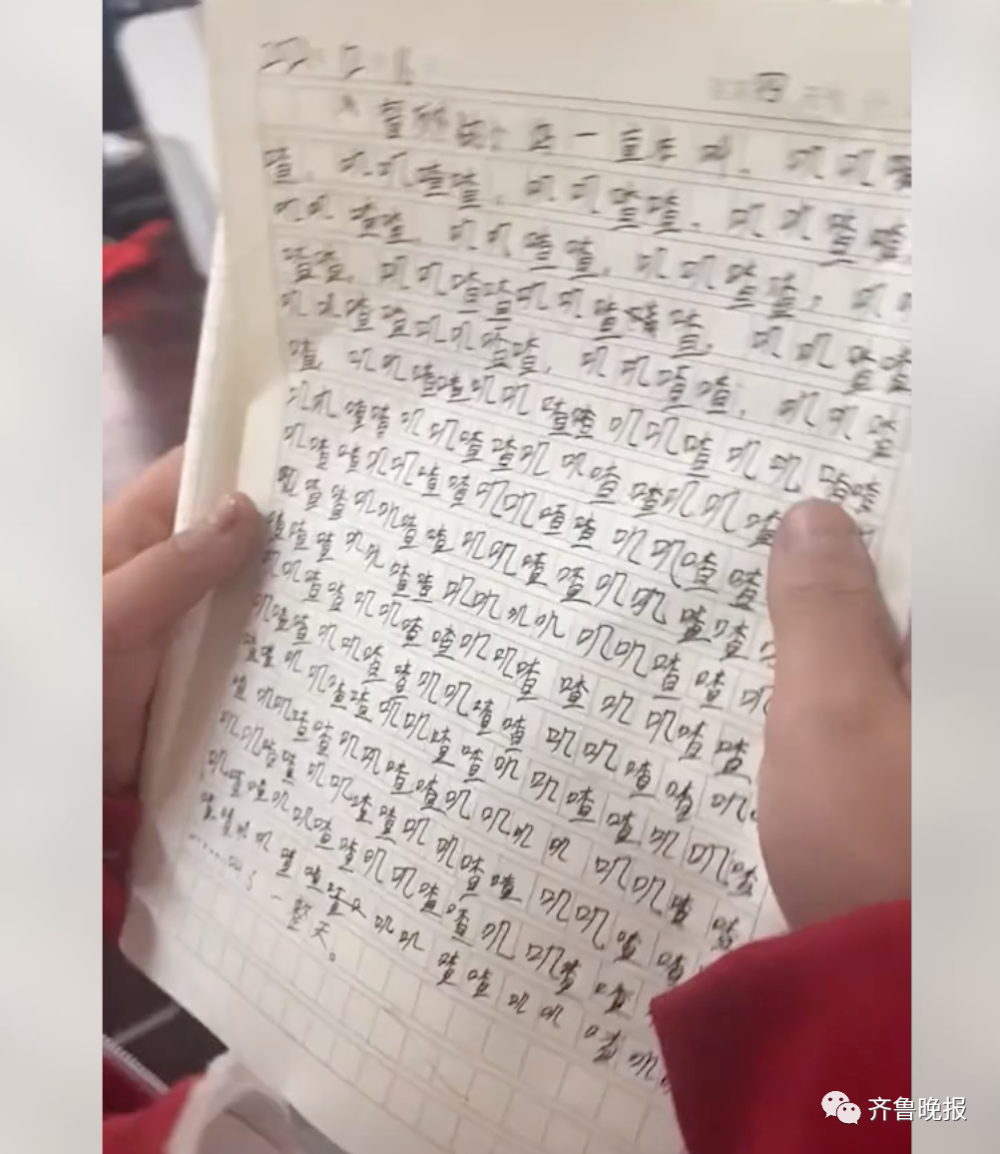 22.12.16 四
一直在叫,叽叽喳
喳,叽叽喳喳,叽叽喳喳,叽叽喳喳,
叽叽喳喳,叽叽喳喳,叽叽喳喳,叽叽
喳喳,叽叽喳喳叽叽喳喳,叽叽喳喳
叽叽喳喳叽叽喳喳,叽叽喳喳,叽叽喳
喳,叽叽喳喳叽叽喳喳叽叽喳叽叽喳喳
叽叽喳喳叽叽喳喳叽叽喳喳叽叽喳
叽喳喳叽叽喳喳叽叽喳喳叽叽喳喳
叽喳喳叽叽喳喳叽叽喳喳叽叽喳喳
喳喳喳叽叽喳喳叽叽叽叽叽叽喳喳叽
叽叽喳喳叽叽喳喳叽叽喳喳叽叽喳喳
叽喳喳叽叽喳喳叽叽喳喳叽叽喳喳叽
喳喳叽叽喳喳叽叽喳喳叽叽喳喳叽叽喳
喳叽叽喳喳叽叽喳喳叽叽叽叽叽叽喳喳
叽叽喳喳叽叽喳喳叽叽喳喳叽叽喳喳
叽喳喳叽叽喳喳叽叽喳喳叽叽喳喳
喳喳叽叽喳喳喳叽叽喳喳叽叽喳叽
……叫了一整天。
齐鲁晚报